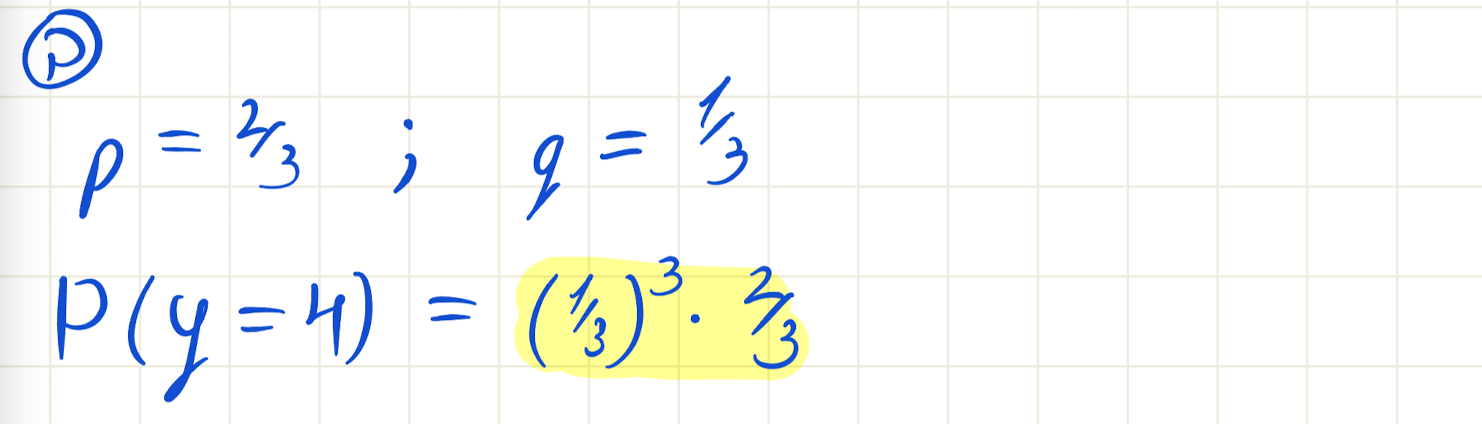 P
p = 2/3 ; q = 1/3
P(y=4) = (1/3)³ · 2/3